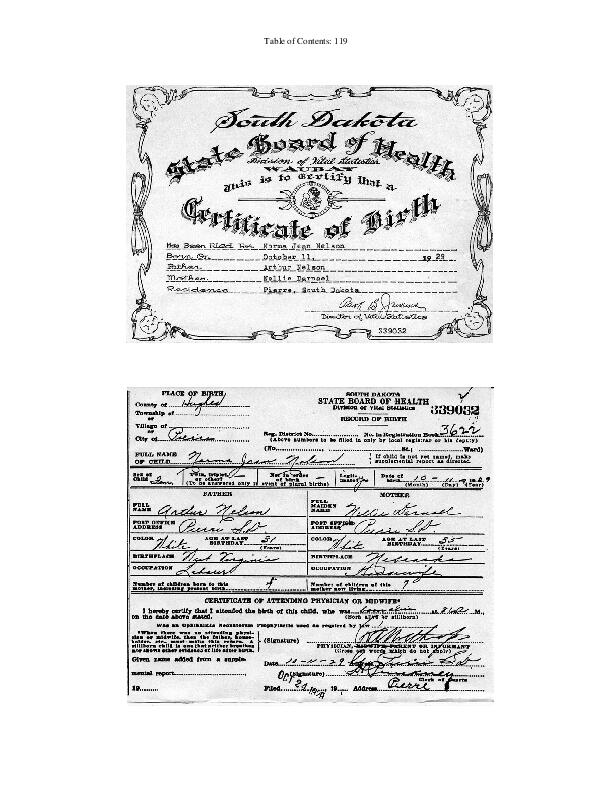 Table of Contents: 119
South Dakota
State Board of Health
Division of Vital Statistics
WAUBAY
This is to Certify that a
Certificate of Birth
Has Been Filed For Norma Jean Nelson
Born On October 11, 1929
Father Arthur Nelson
Mother Nellie Darnoel
Residence Pierre, South Dakota
Director of Vital Statistics
339032
PLACE OF BIRTH
County of Hughes
Township of
or
Village of
or
City of Pierre
SOUTH DAKOTA
STATE BOARD OF HEALTH
Division of Vital Statistics
RECORD OF BIRTH
339032
Reg. District No. No. in Registration Book 3622
(Above numbers to be filled in only by local registrar or his deputy)
(No. St.; Ward)
FULL NAME OF CHILD Norma Jean Nelson
If child is not yet named, make supplemental report as directed.
Sex of Child
Twin, triplet, or other?
Number in order of birth
(To be answered only in event of plural births)
Legitimate? yes
Date of birth 10 - 11 1929
(Month) (Day) (Year)
FATHER
FULL NAME Arthur Nelson
POST OFFICE ADDRESS Pierre S.D.
COLOR White AGE AT LAST BIRTHDAY 51
(Years)
BIRTHPLACE West Virginia
OCCUPATION Laborer
MOTHER
FULL MAIDEN NAME Nellie Darnoel
POST OFFICE ADDRESS Pierre S.D.
COLOR White AGE AT LAST BIRTHDAY 35
(Years)
BIRTHPLACE Nebraska
OCCUPATION Housewife
Number of children born to this mother, including present birth
Number of children of this mother now living
CERTIFICATE OF ATTENDING PHYSICIAN OR MIDWIFE*
I hereby certify that I attended the birth of this child, who was born alive at M.,
on the date above stated. (Born alive or stillborn)
Was an Ophthalmia Neonatorum Prophylactic used as required by law
*When there was no attending physician or midwife, then the father, householder, etc., must make this return. A stillborn child is one that neither breathes nor shows other evidence of life after birth.
(Signature)
PHYSICIAN, MIDWIFE PARENT OR INFORMANT
(Cross out words which do not apply)
Given name added from a supplemental report
19
Date 10-11-29
(Signature)
Clerk of Courts
Filed Oct 21 1929 19 Address Pierre